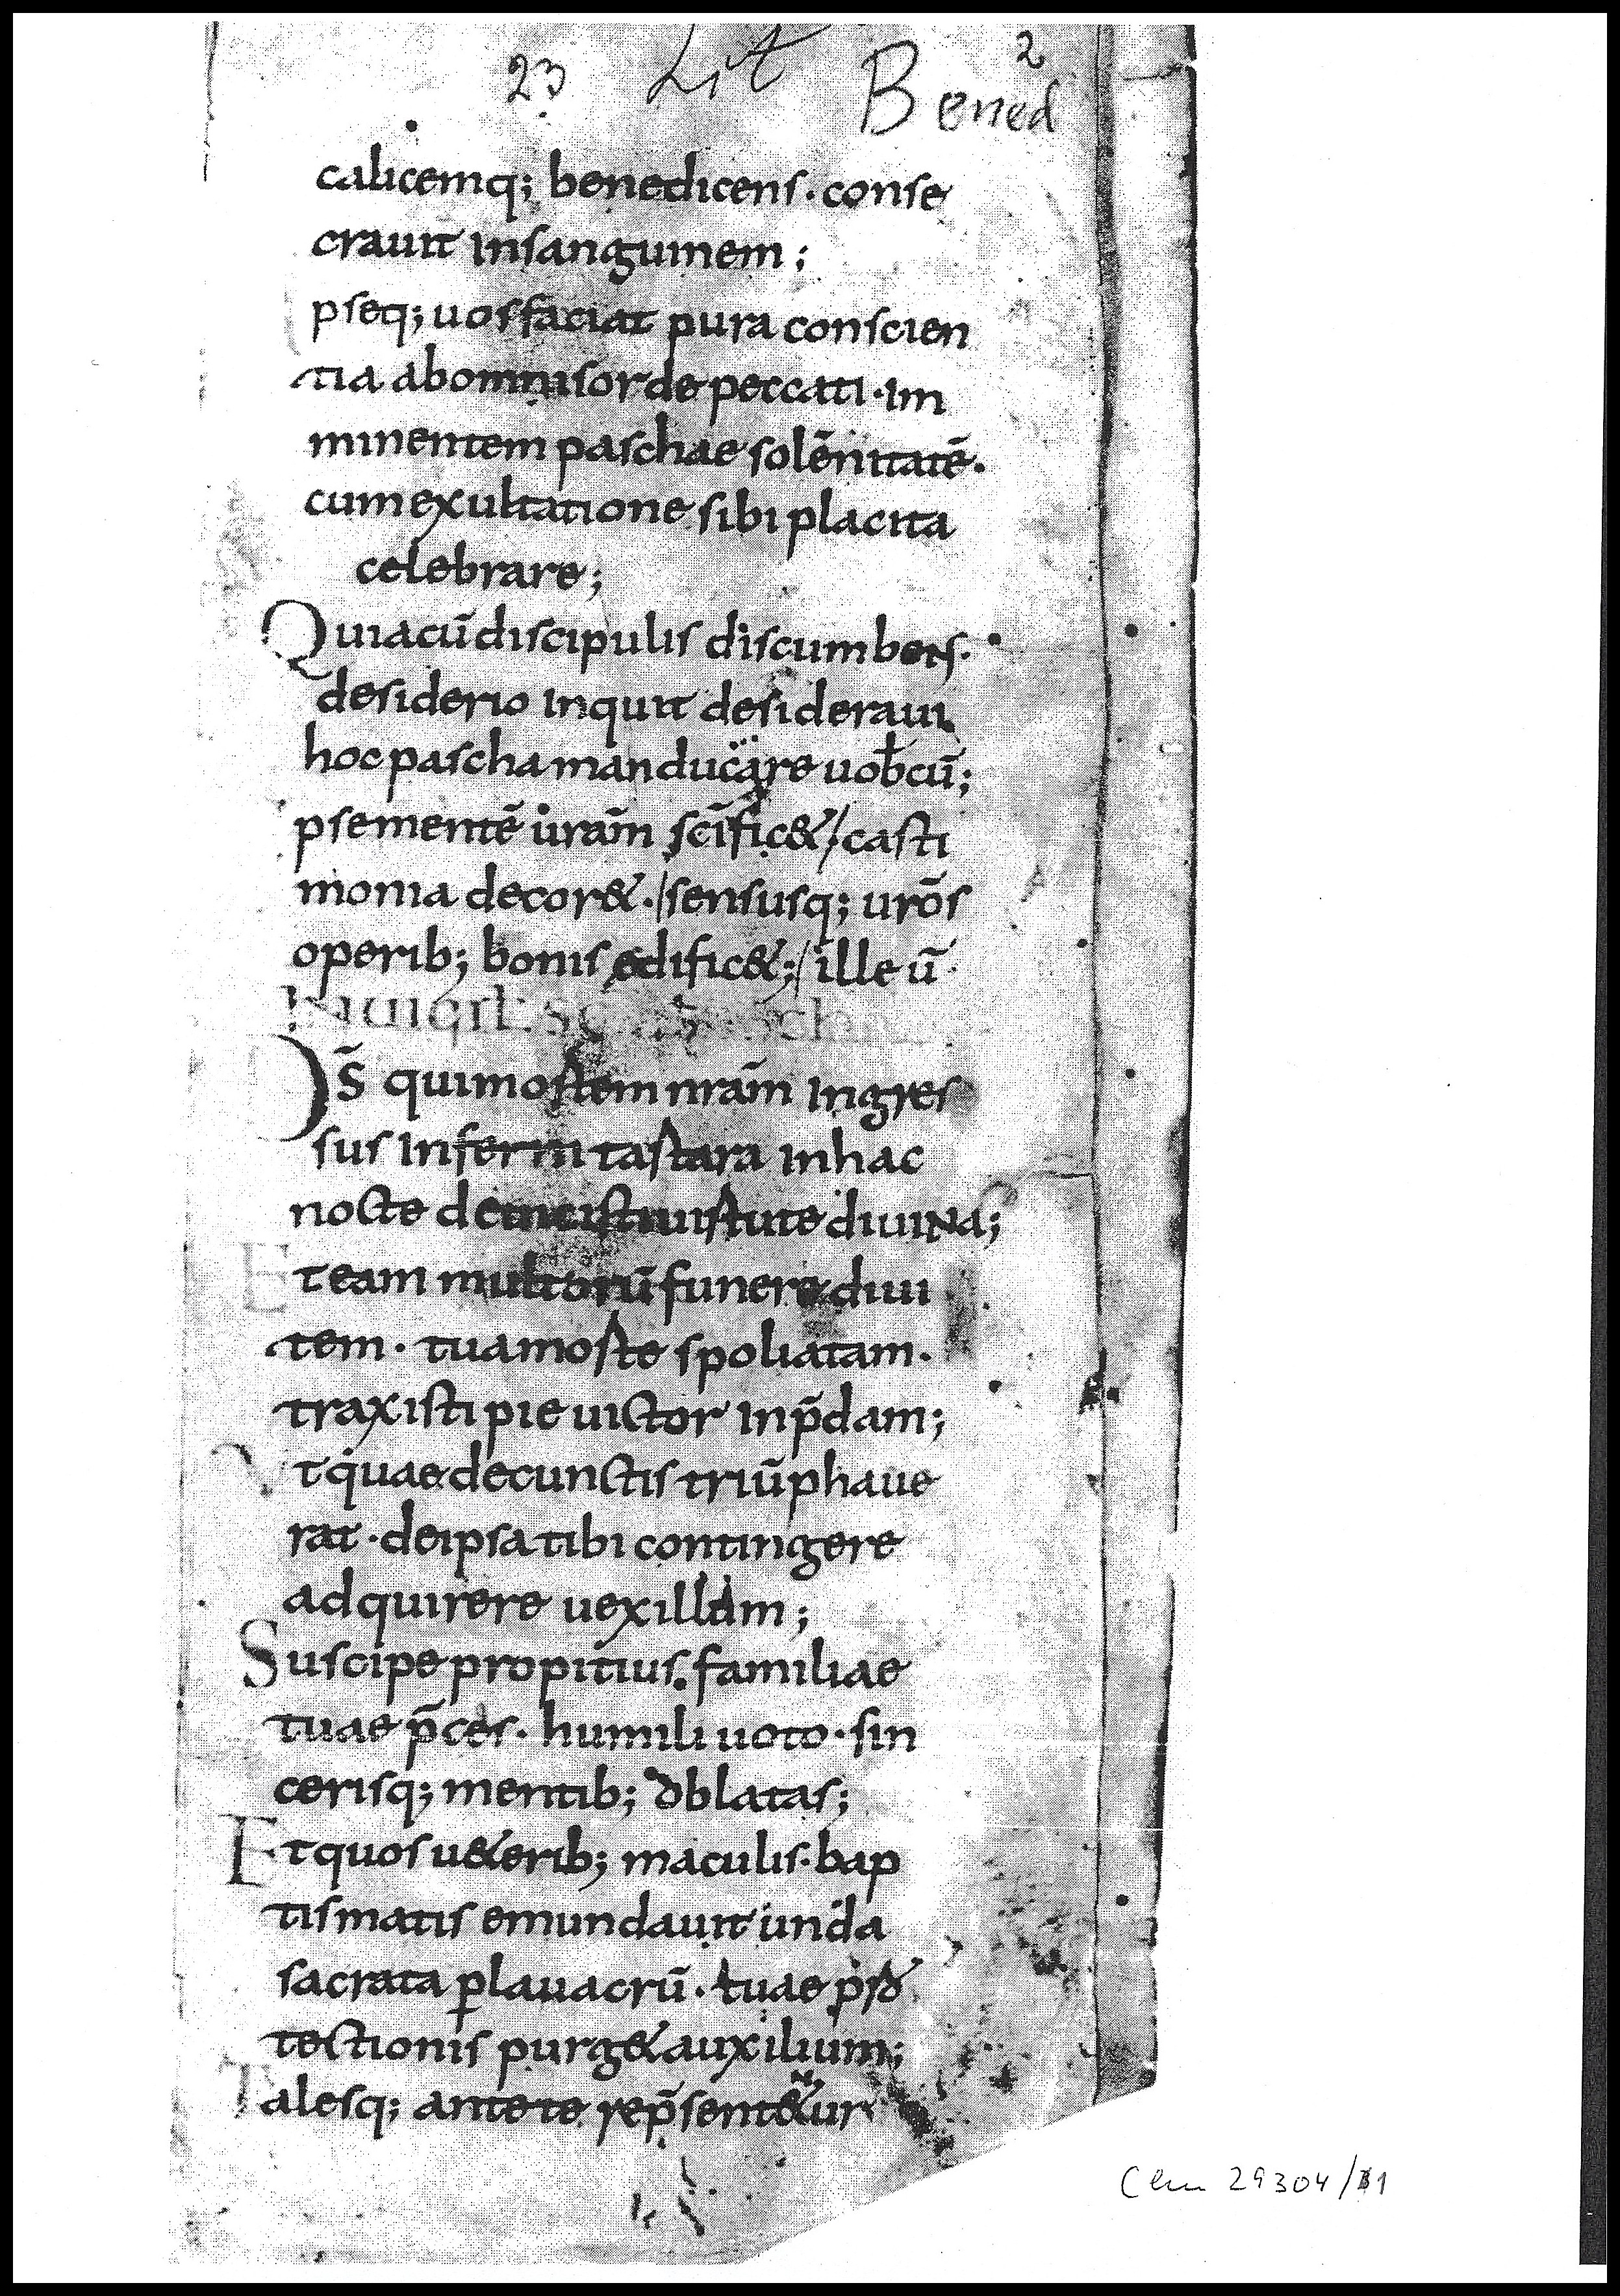 23 Lit 2
Bened
calicemq; benedicens · conse
crauit insanguinem ;
pseq; uosfaciat pura conscien
tia abomnisorde peccati · im
minentem paschae solēnitatē ·
cumexultatione sibi placita
celebrare ;
Quiacū discipulis discumbens ·
desiderio inquit desideraui
hoc pascha manducare uobcū ;
psementē urām scīfic& / casti
monia decor& · / sensusq; urōs
operib; bonis edific& ; / ille ū
D̄s quimortem nrām ingres
sus inferni tartara inhac
nocte deuicisti uirtute diuina ;
Et eam multorū funere diui
tem · tuamorte spoliatam ·
traxisti pie uictor inp̄dam ;
Vt quae decunctis triūphaue
rat · deipsa tibi contingere
adquirere uexillum ;
Suscipe propitius · familiae
tuae p̄ces · humili uoto · sin
cerisq; mentib; oblatas ;
Et quos u&erib; maculis · bap
tismatis emundauit unda
sacrata p̲lauacrū · tuae pro
tectionis purg& auxilium ;
Talesq; ante te rep̄sent&ur
Clm 29304/1